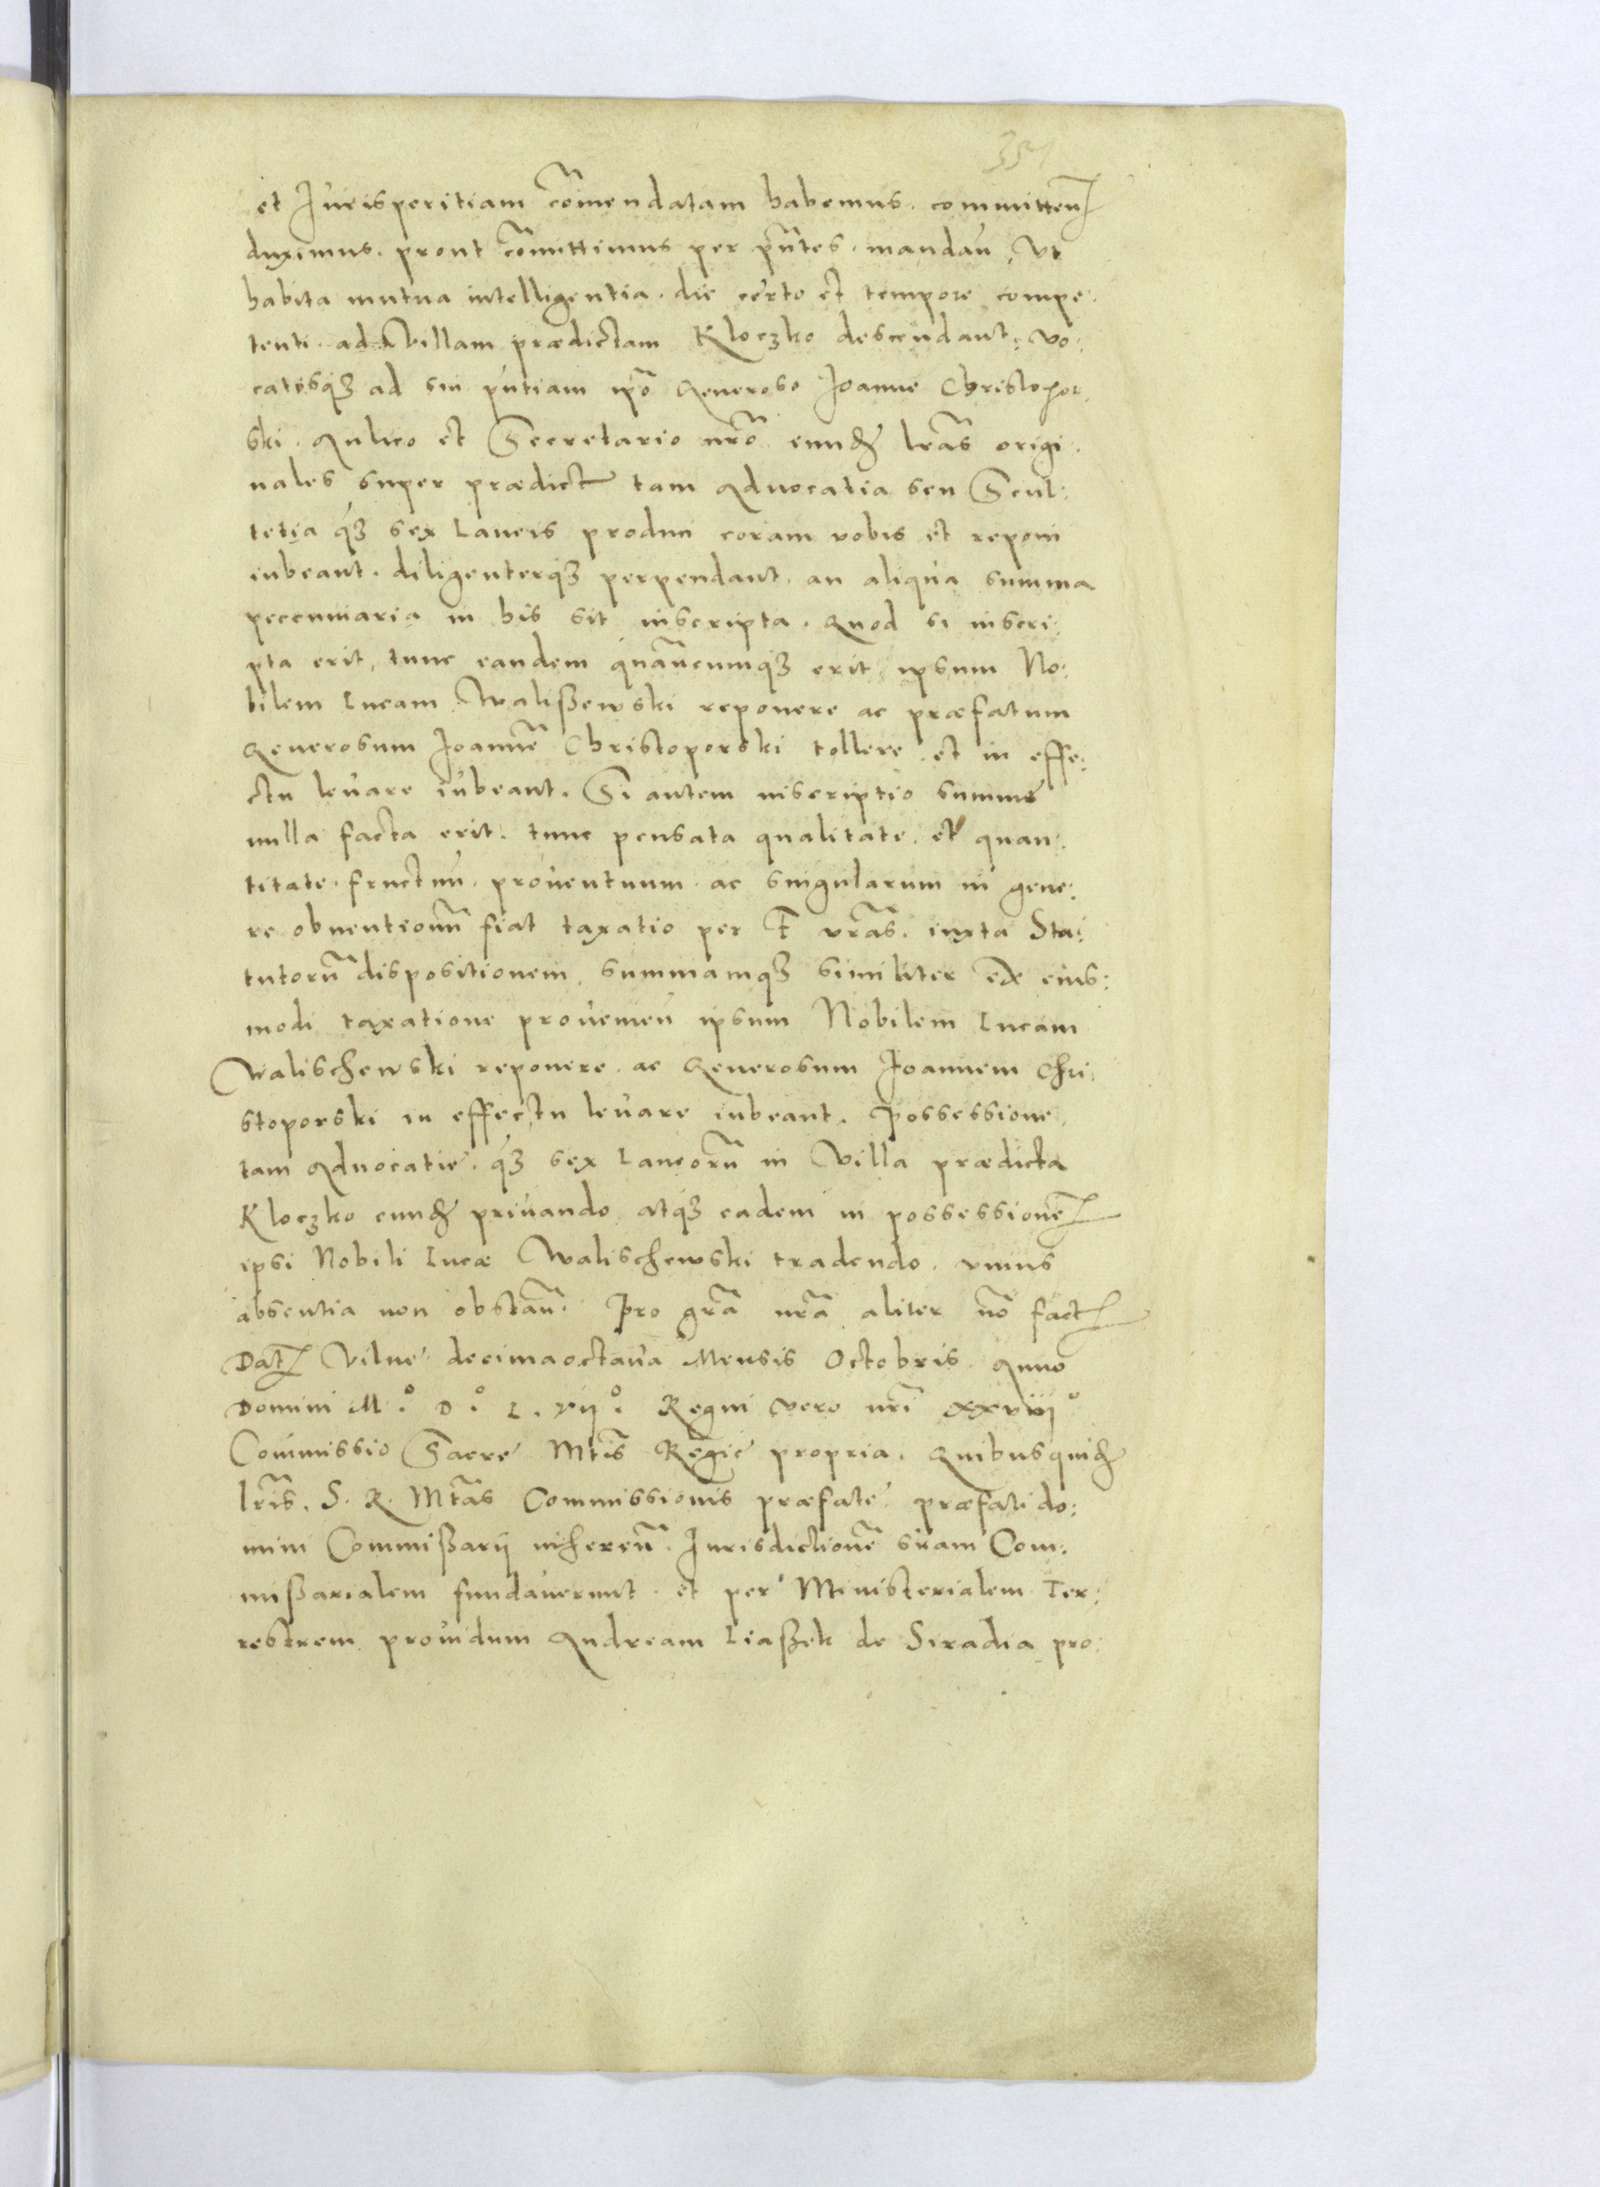 et Iurisperitiam cōmendatam habemus. committen̄
duximus. prout cōmittimus per pn̄tes. mandan̄. Vt
habita mutua intelligentia. die certo et tempore compe:
tenti. ad Villam prædictam Kloczko descendant: vo:
catisq3 ad sui pn̄tiam ipō Generoso Ioanne Christopor:
ski. Aulico et Secretario nrō eund lrās origi:
nales super prædict tam Aduocatia seu Scul:
tetia q3 sex Laneis produci coram vobis et reponi
iubeant. diligenterq3 perpendant. an aliqua summa
peccuniaria in his sit inscripta. Quod si inscri:
pta erit, tunc eandem quācumq3 erit ipsum No:
bilem Lucam Walißewski reponere ac præfatum
Generosum Ioannē Christoporski tollere et in effe:
ctu leuare iubeant. Si autem inscriptio summe
nulla facta erit. tunc pensata qualitate. et quan:
titate. fructuū. prouentuum. ac singularum in gene:
re obuentionū fiat taxatio per F vrās. iuxta Sta:
tutorū dispositionem, summamq3 similiter ex eius:
modi taxatione prouenien̄ ipsum Nobilem Lucam
Walischewski reponere. ac Generosum Ioannem Chri:
stoporski in effectu leuare iubeant. Possessione
tam Aduocatie. q3 sex Laneorū in Villa prædicta
Kloczko eund priuando atq3 eadem in possessionē
ipsi Nobili Lucæ Walischewski tradendo. vnius
absentia non obstan̄. Pro grā nrā aliter nō fact
Dat Vilne decimaoctaua Mensis Octobris Anno
Domini M.º D.º L. vij.º Regni vero nrī xxviijº
Commissio Sacre Mtis Regie propria. Quibusquid
lrīs. S. R. Mtās Commissionis præfate præfati do:
mini Commißarij inherēn. Iurisdictionē suam Com:
mißarialem fundauerunt. et per Ministerialem Ter:
restrem prouidum Andream Liaßek de Siradia pro: